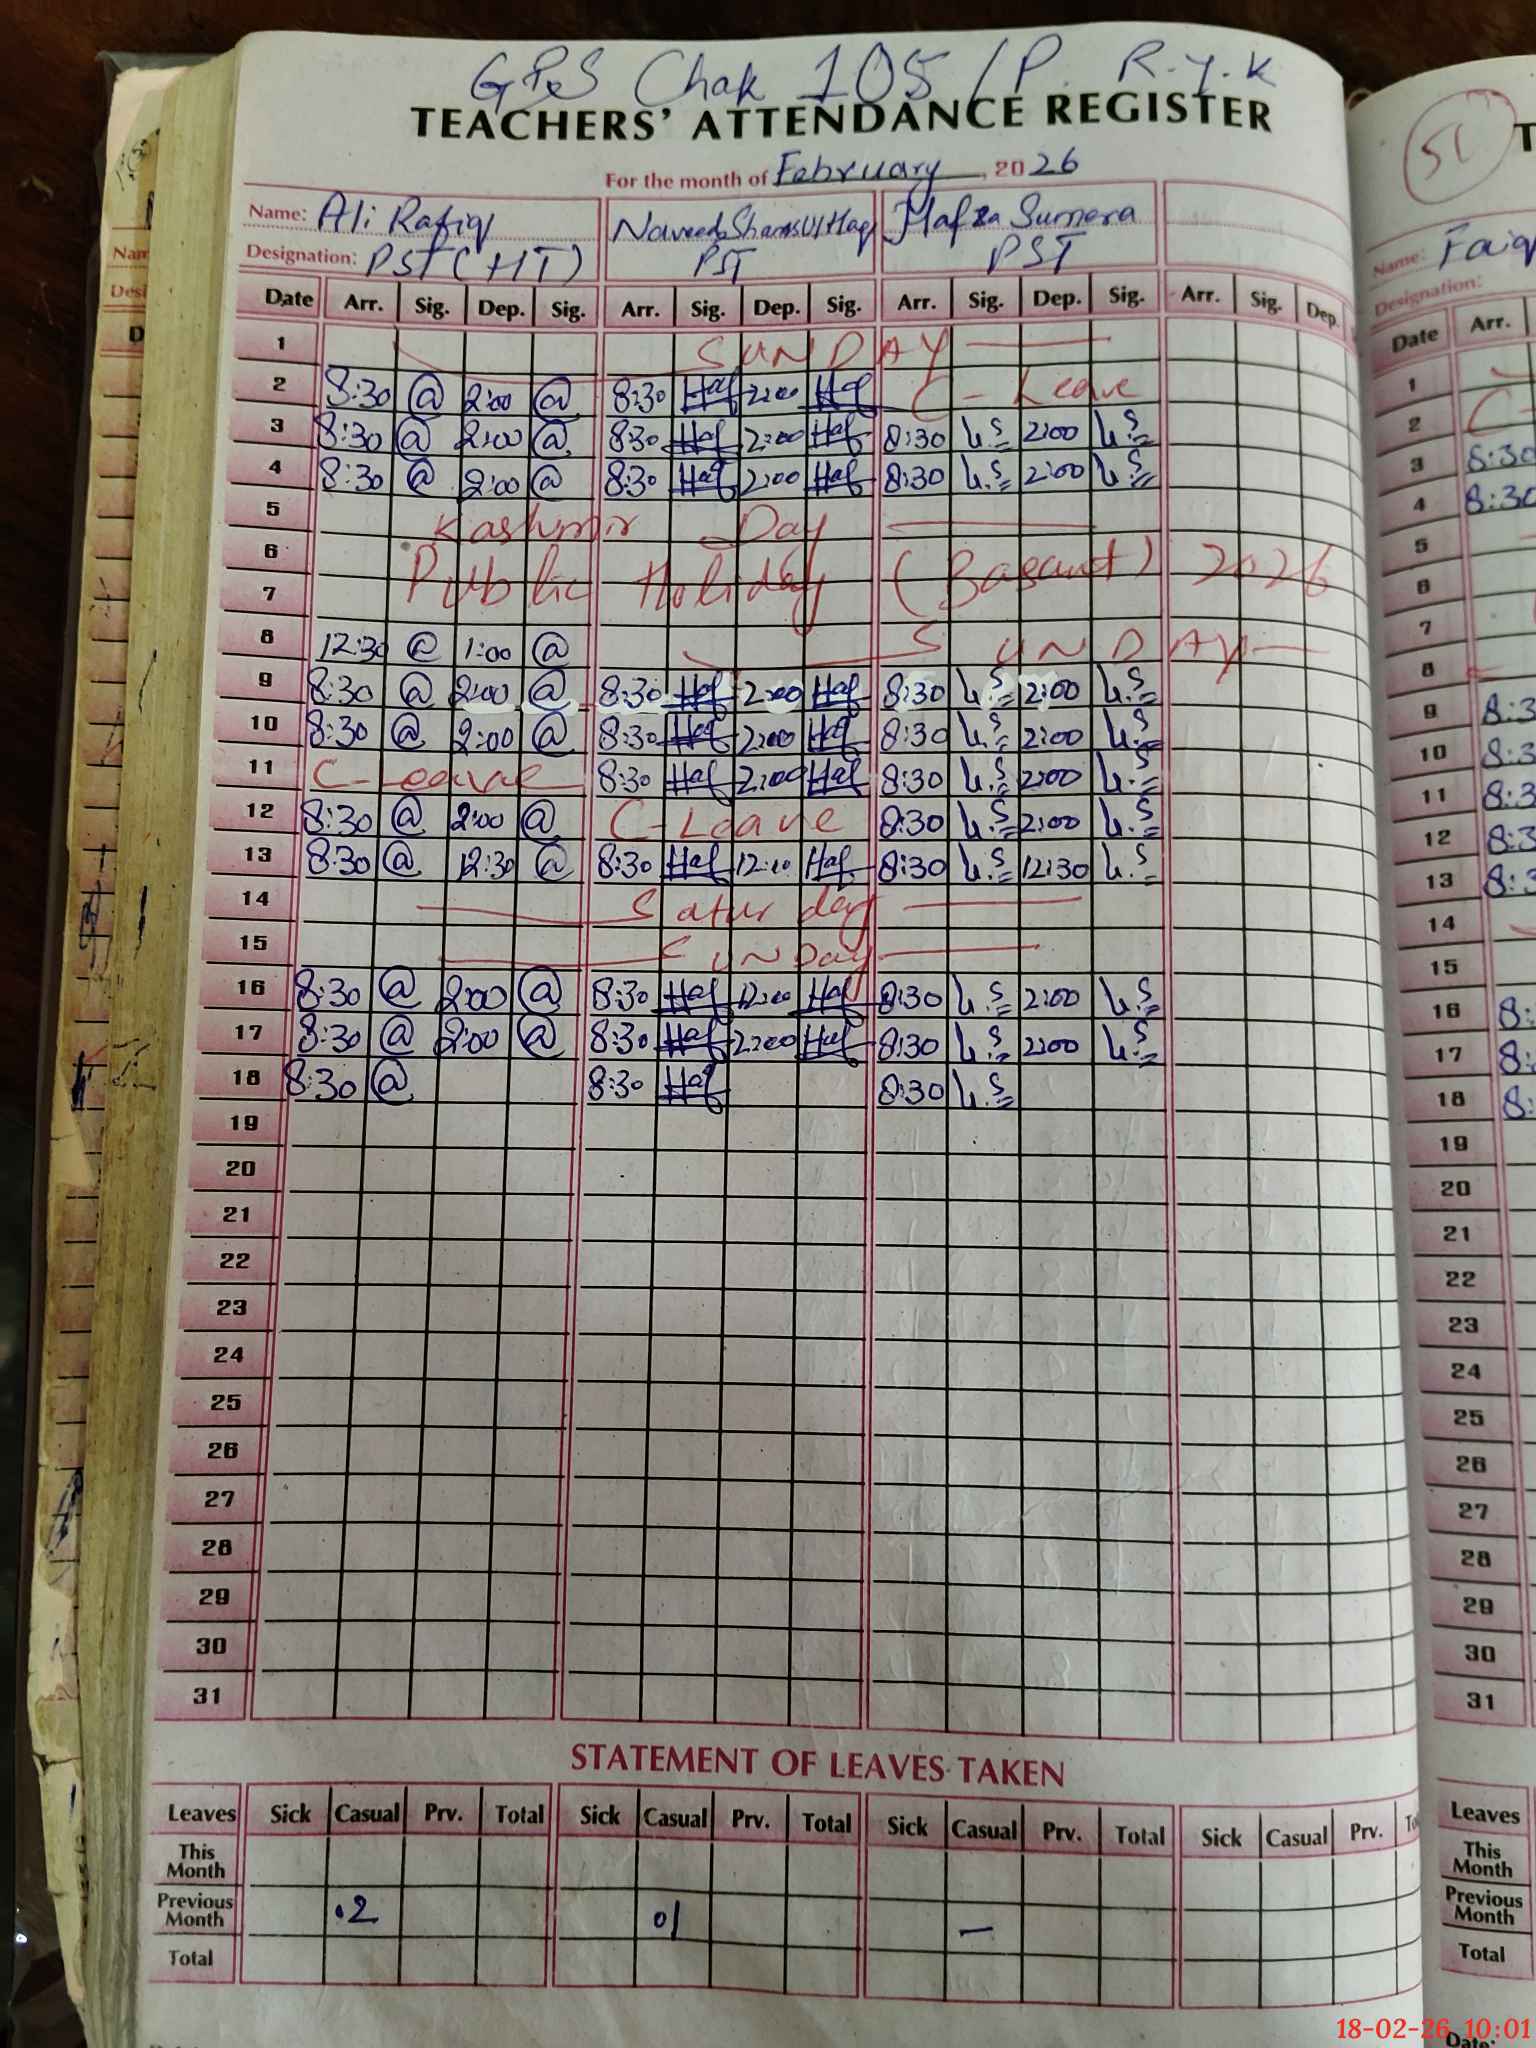 GPS Chak 105/P. R.Y.K
TEACHERS' ATTENDANCE REGISTER
For the month of February, 2026
Name: Ali Rafiq Naveed Shams Ul Haq Hafza Sumera
Designation: PST (HT) PST PST
Date Arr. Sig. Dep. Sig. Arr. Sig. Dep. Sig. Arr. Sig. Dep. Sig. Arr. Sig. Dep.
1 SUNDAY
2 8:30 @ 2:00 @ 8:30 Haf 2:00 Haf C-Leave
3 8:30 @ 2:00 @ 8:30 Haf 2:00 Haf 8:30 h.S 2:00 h.S
4 8:30 @ 2:00 @ 8:30 Haf 2:00 Haf 8:30 h.S 2:00 h.S
5 Kashmir Day
6
Public Holiday (Basant) 2026
7
8 12:30 @ 1:00 @ SUNDAY
9 8:30 @ 2:00 @ 8:30 Haf 2:00 Haf 8:30 h.S 2:00 h.S
10 8:30 @ 2:00 @ 8:30 Haf 2:00 Haf 8:30 h.S 2:00 h.S
11 C-Leave 8:30 Haf 2:00 Haf 8:30 h.S 2:00 h.S
12 8:30 @ 2:00 @ C-Leave 8:30 h.S 2:00 h.S
13 8:30 @ 12:30 @ 8:30 Haf Haf 8:30 h.S 12:30 h.S
14 Saturday
15 SUNDay
16 8:30 @ 2:00 @ 8:30 Haf Haf 8:30 h.S 2:00 h.S
17 8:30 @ 2:00 @ 8:30 Haf 2:00 Haf 8:30 h.S 2:00 h.S
18 8:30 @ 8:30 Haf 8:30 h.S
19
20
21
22
23
24
25
26
27
28
29
30
31
STATEMENT OF LEAVES TAKEN
Leaves Sick Casual Prv. Total Sick Casual Prv. Total Sick Casual Prv. Total Sick Casual Prv.
This
Month
Previous
Month .2 01 —
Total
51
Name:
Designation:
Date Arr.
1
2
3 8:30
4 8:30
5
6
7
8
9
10
11
12
13
14
15
16
17
18
19
20
21
22
23
24
25
26
27
28
29
30
31
Leaves
This
Month
Previous
Month
Total
Date:
18-02-26 10:01